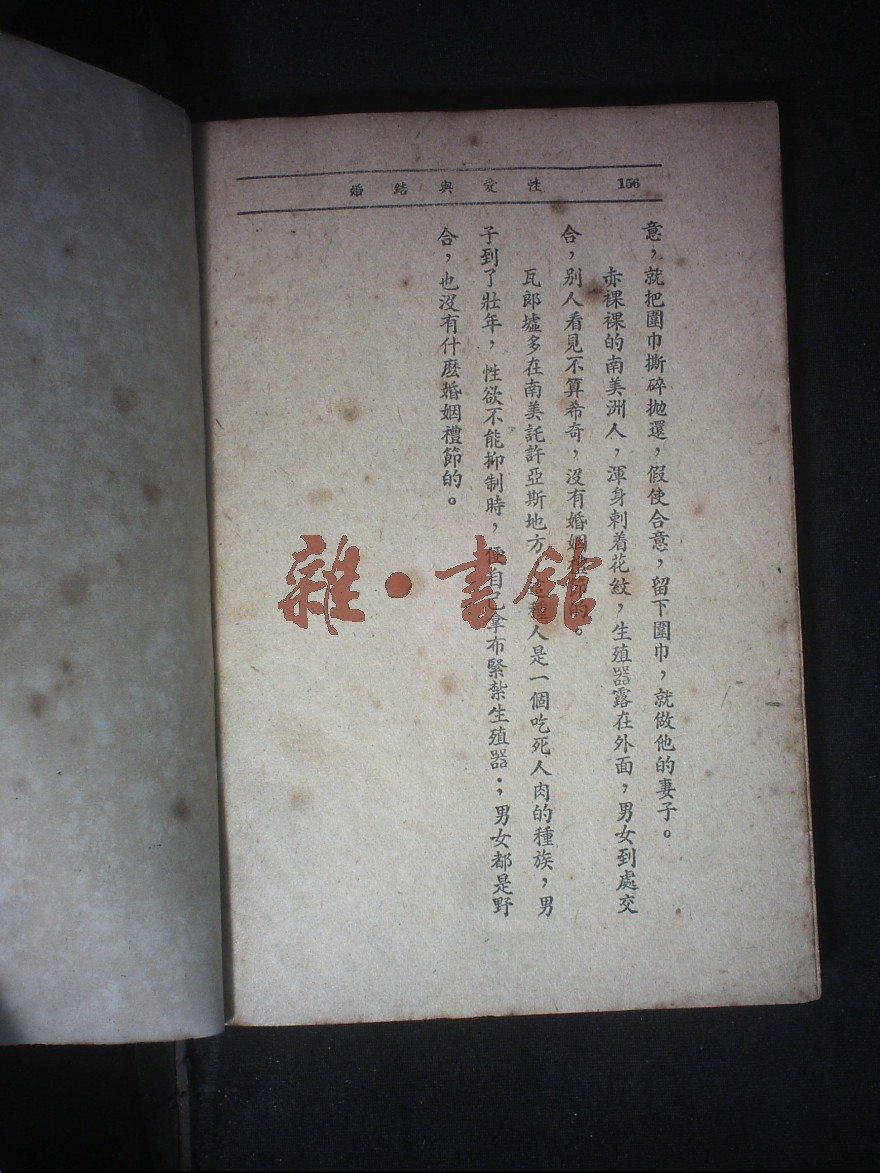 156　性愛與結婚
意，就把圍巾撕碎拋還，假使合意，留下圍巾，就做他的妻子。
赤裸裸的南美洲人，渾身刺着花紋，生殖器露在外面，男女到處交
合，別人看見不算希奇，沒有婚姻禮節的。
瓦郎墟多在南美託許亞斯地方，這種人是一個吃死人肉的種族，男
子到了壯年，性欲不能抑制時，便自己拿布緊紮生殖器；男女都是野
合，也沒有什麽婚姻禮節的。
雜·書館